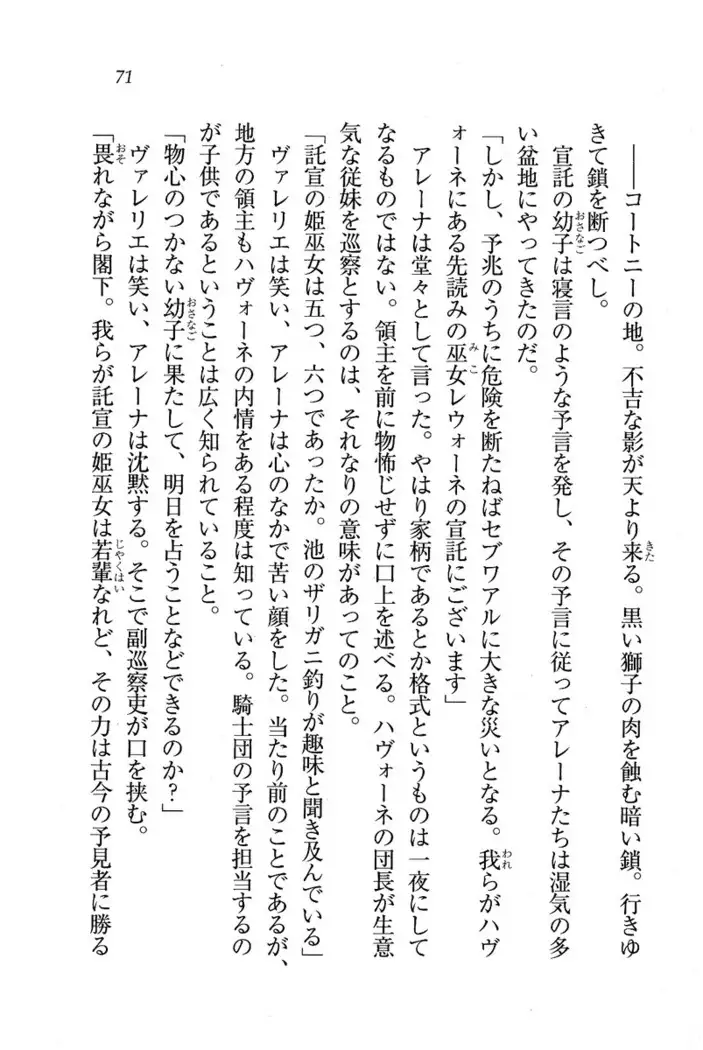 71
――コートニーの地。不吉な影が天より来る。黒い獅子の肉を蝕む暗い鎖。行きゆ
きて鎖を断つべし。
宣託の幼子は寝言のような予言を発し、その予言に従ってアレーナたちは湿気の多
い盆地にやってきたのだ。
「しかし、予兆のうちに危険を断たねばセブワアルに大きな災いとなる。我らがハヴ
ォーネにある先読みの巫女レウォーネの宣託にございます」
アレーナは堂々として言った。やはり家柄であるとか格式というものは一夜にして
なるものではない。領主を前に物怖じせずに口上を述べる。ハヴォーネの団長が生意
気な従妹を巡察とするのは、それなりの意味があってのこと。
「託宣の姫巫女は五つ、六つであったか。池のザリガニ釣りが趣味と聞き及んでいる」
ヴァレリエは笑い、アレーナは心のなかで苦い顔をした。当たり前のことであるが、
地方の領主もハヴォーネの内情をある程度は知っている。騎士団の予言を担当するの
が子供であるということは広く知られていること。
「物心のつかない幼子に果たして、明日を占うことなどできるのか？」
ヴァレリエは笑い、アレーナは沈黙する。そこで副巡察吏が口を挟む。
「畏れながら閣下。我らが託宣の姫巫女は若輩なれど、その力は古今の予見者に勝る